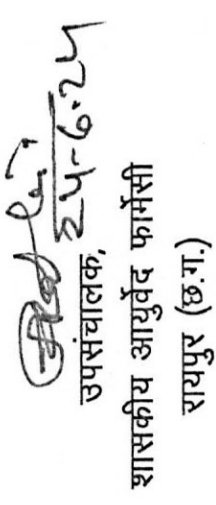 24-6-24
उपसंचालक,
शासकीय आयुर्वेद फार्मेसी
रायपुर (छ.ग.)